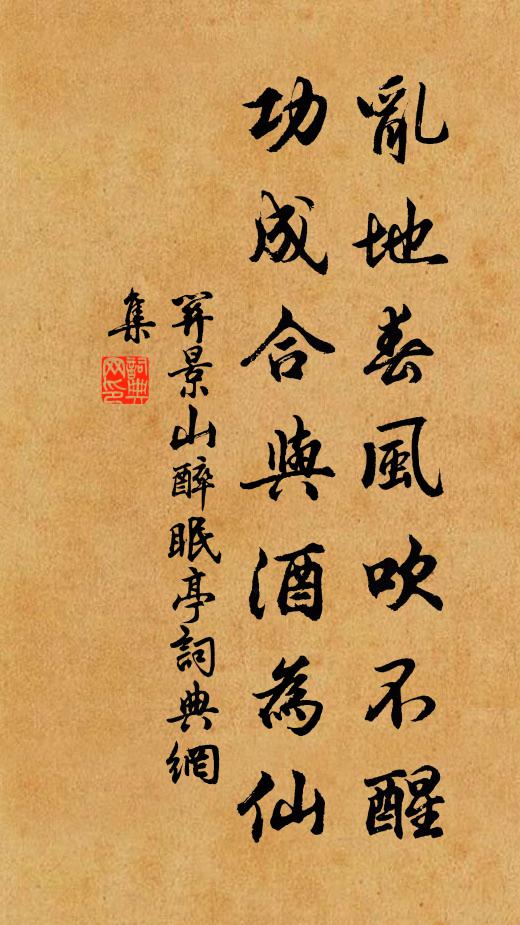 亂地春風吹不醒
功成合與酒為仙
笄景山醉眠亭詞典網
集
詞典
网印